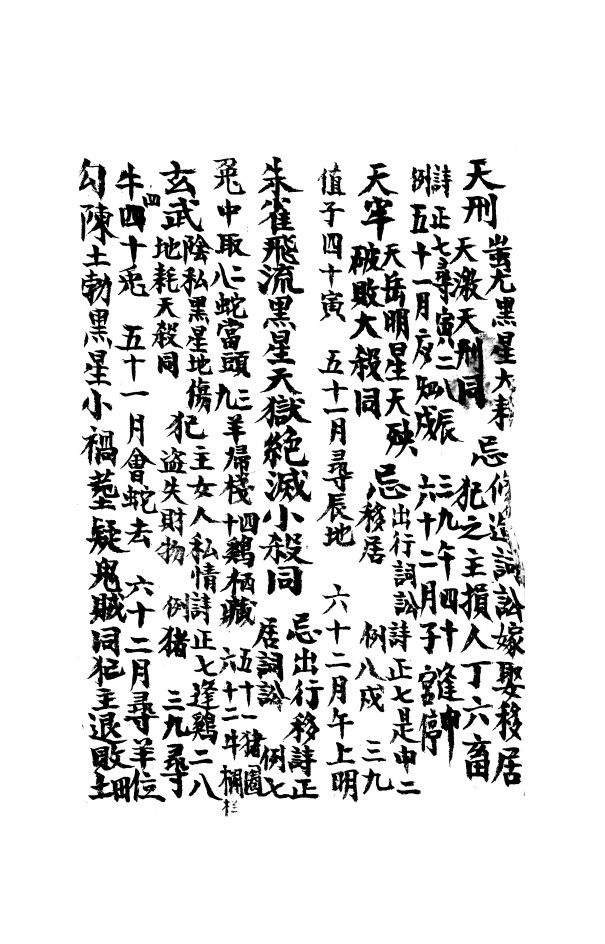 天刑 蚩尤黑星大耗 忌修造詞訟嫁娶移居
天激天刑同 犯之主損人丁六畜
詩例 正七尋寅二八辰 三九午四十逢申
五十一月戌知戌 六十二月子宮停
天牢 天岳明星天殃 忌出行詞訟 詩正七是申二
破敗大殺同 移居 例八戌 三九
值子四十寅 五十一月尋辰地 六十二月午上明
朱雀飛流黑星天獄絶滅小殺同 忌出行移居詞訟 詩例正七
兎中取二八蛇當頭三九羊歸棧四十鷄栖藏 五十一猪圈六十二牛欄
玄武 陰私黑星地傷 犯主女人私情 詩正七逢鷄二八
地耗天殺同 盗失財物 例猪 三九尋
牛四十兎 五十一月會蛇去 六十二月尋羊位
勾陳土勃黑星小禍墓疑鬼賊同犯主退敗田土